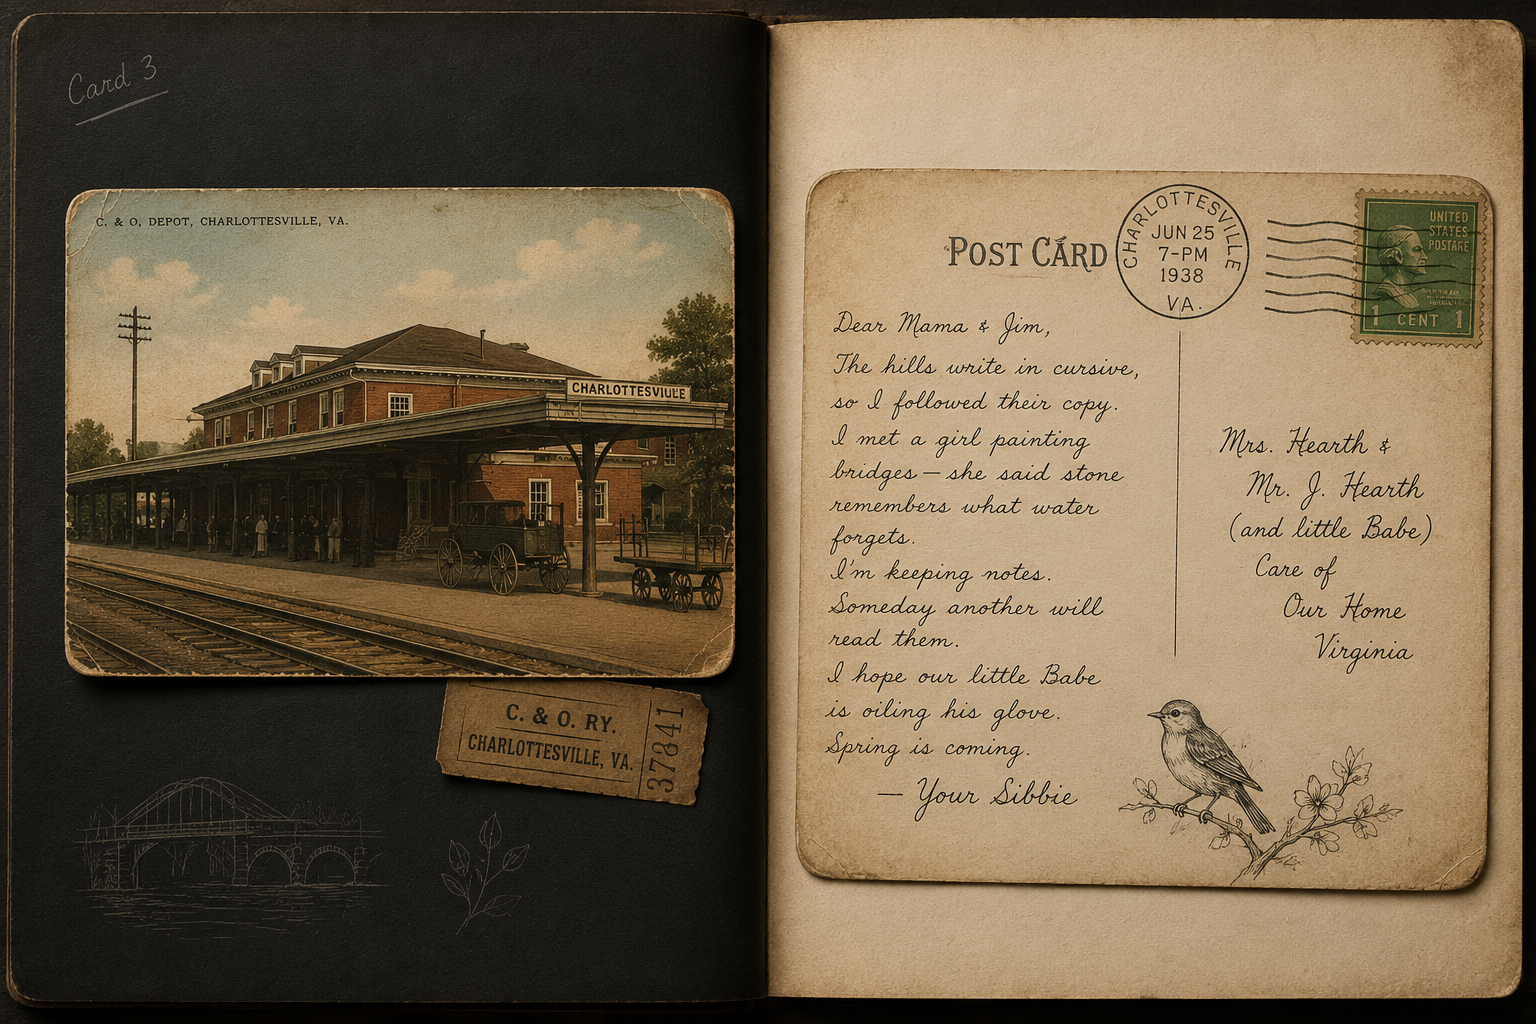 Card 3
C. & O. DEPOT, CHARLOTTESVILLE, VA.
CHARLOTTESVILLE
C. & O. RY.
CHARLOTTESVILLE, VA.
37841
POST CARD
CHARLOTTESVILLE
JUN 25
7-PM
1938
VA.
UNITED
STATES
POSTAGE
1 CENT 1
Dear Mama & Jim,
The hills write in cursive,
so I followed their copy.
I met a girl painting
bridges — she said stone
remembers what water
forgets.
I'm keeping notes.
Someday another will
read them.
I hope our little Babe
is oiling his glove.
Spring is coming.
— Your Sibbie
Mrs. Hearth &
Mr. J. Hearth
(and little Babe)
Care of
Our Home
Virginia